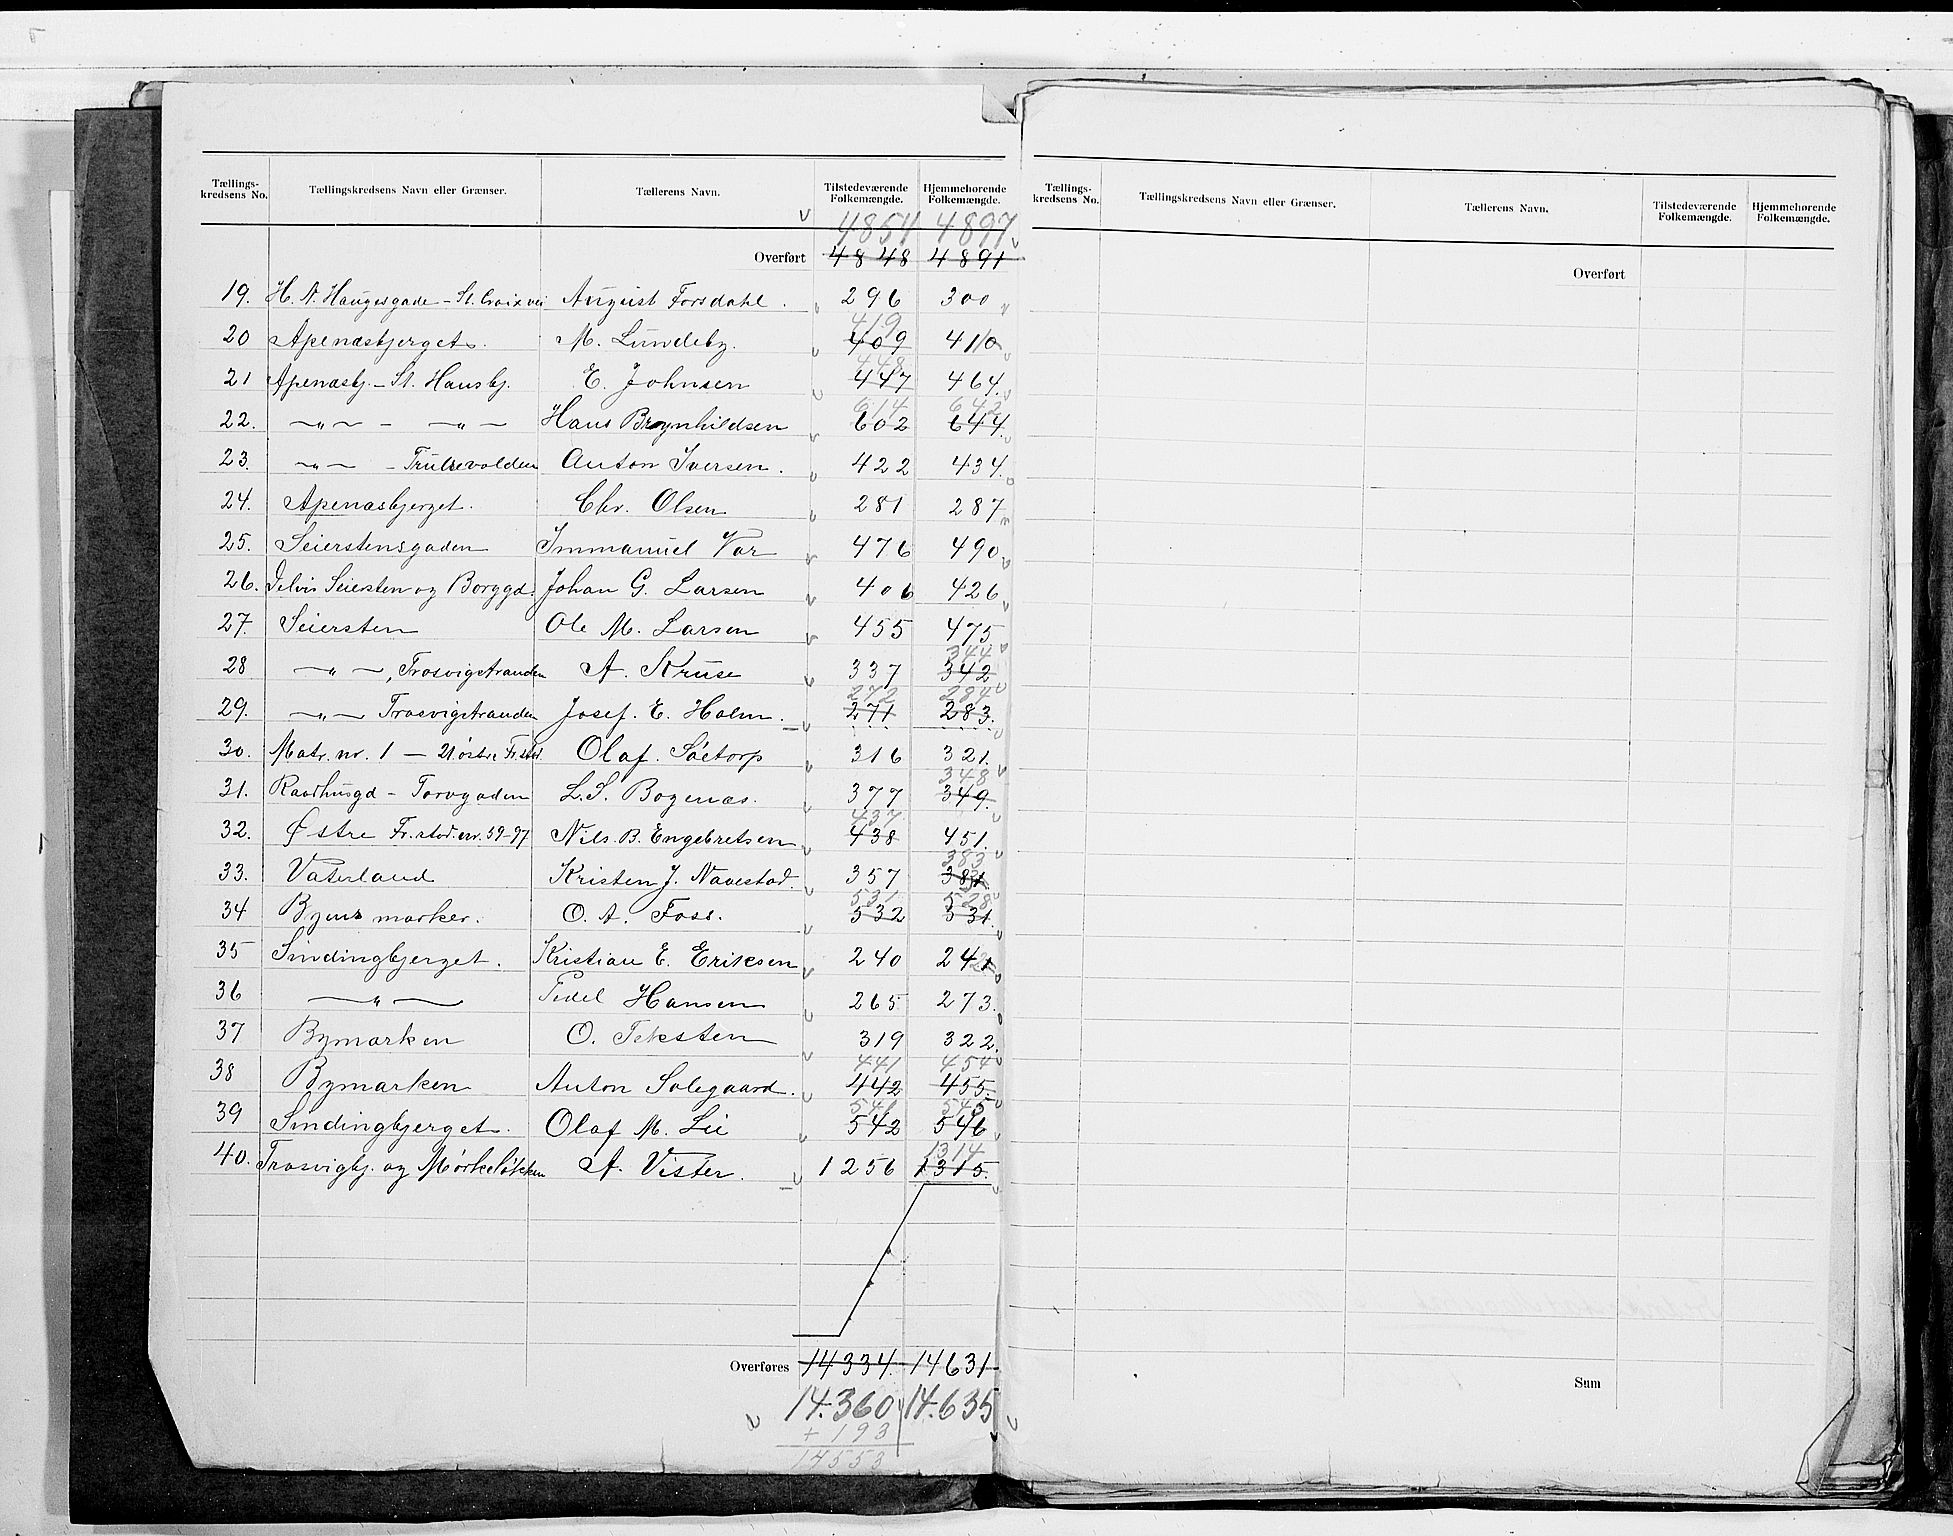 Tællings-kredsens No. Tællingskredsens Navn eller Grænser. Tællerens Navn. Tilstedeværende Folkemængde. Hjemmehørende Folkemængde.
4854 4897
Overført 4848 4891
19. H. N. Haugesgade - St. Croixvei August Forsdahl. 296 300
419
20 Apenæsbjerget. M. Lundeby. 409 410
448
21 Apenæsbj. - St. Hansbj. E. Johnsen 447 464.
614 642
22. —„— - —„— Hans Brynhildsen 602 644.
23. —„— - Trulsevolden Anton Iversen. 422 434.
24. Apenæsbjerget. Chr. Olsen 281 287
25. Seierstensgaden Immanuel Var 476 490
26. Delvis Seiersten og Borggd. Johan G. Larsen 406 426
27. Seiersten Ole M. Larsen 455 475
344
28 —„—, Trosvigstranden A. Kruse 337 342
272 284
29. —„— Trosvigstranden Josef. E. Holm. 271 283.
30. Matr. nr. 1 — 21 østre Fr.stad. Olaf. Søetorp 316 321.
348
31. Raadhusgd - Torvgaden L. S. Bogenæs. 377 349.
437
32. Østre Fr.stad. nr. 59-97 Nils. B. Engebretsen 438 451.
383
33. Vaterland Kristen J. Navestad. 357 381
531 528
34 Byens marker. O. A. Foss. 532 531.
35 Smdingbjerget. Kristian E. Eriksen 240 241
36 —„— Pedel Hansen 265 273.
37 Bymarken O. Teksten 319 322.
441 454
38 Bymarken Anton Solegaard. 442 455.
541 545
39 Smdingbjerget. Olaf M. Lie 542 546
1314
40. Trosvigbj. og Mørkeløkken A. Vister. 1256 1315.
Overføres 14334. 14631
14.360 14.635
+ 193
14553
Tællings-kredsens No. Tællingskredsens Navn eller Grænser. Tællerens Navn. Tilstedeværende Folkemængde. Hjemmehørende Folkemængde.
Overført
Sum